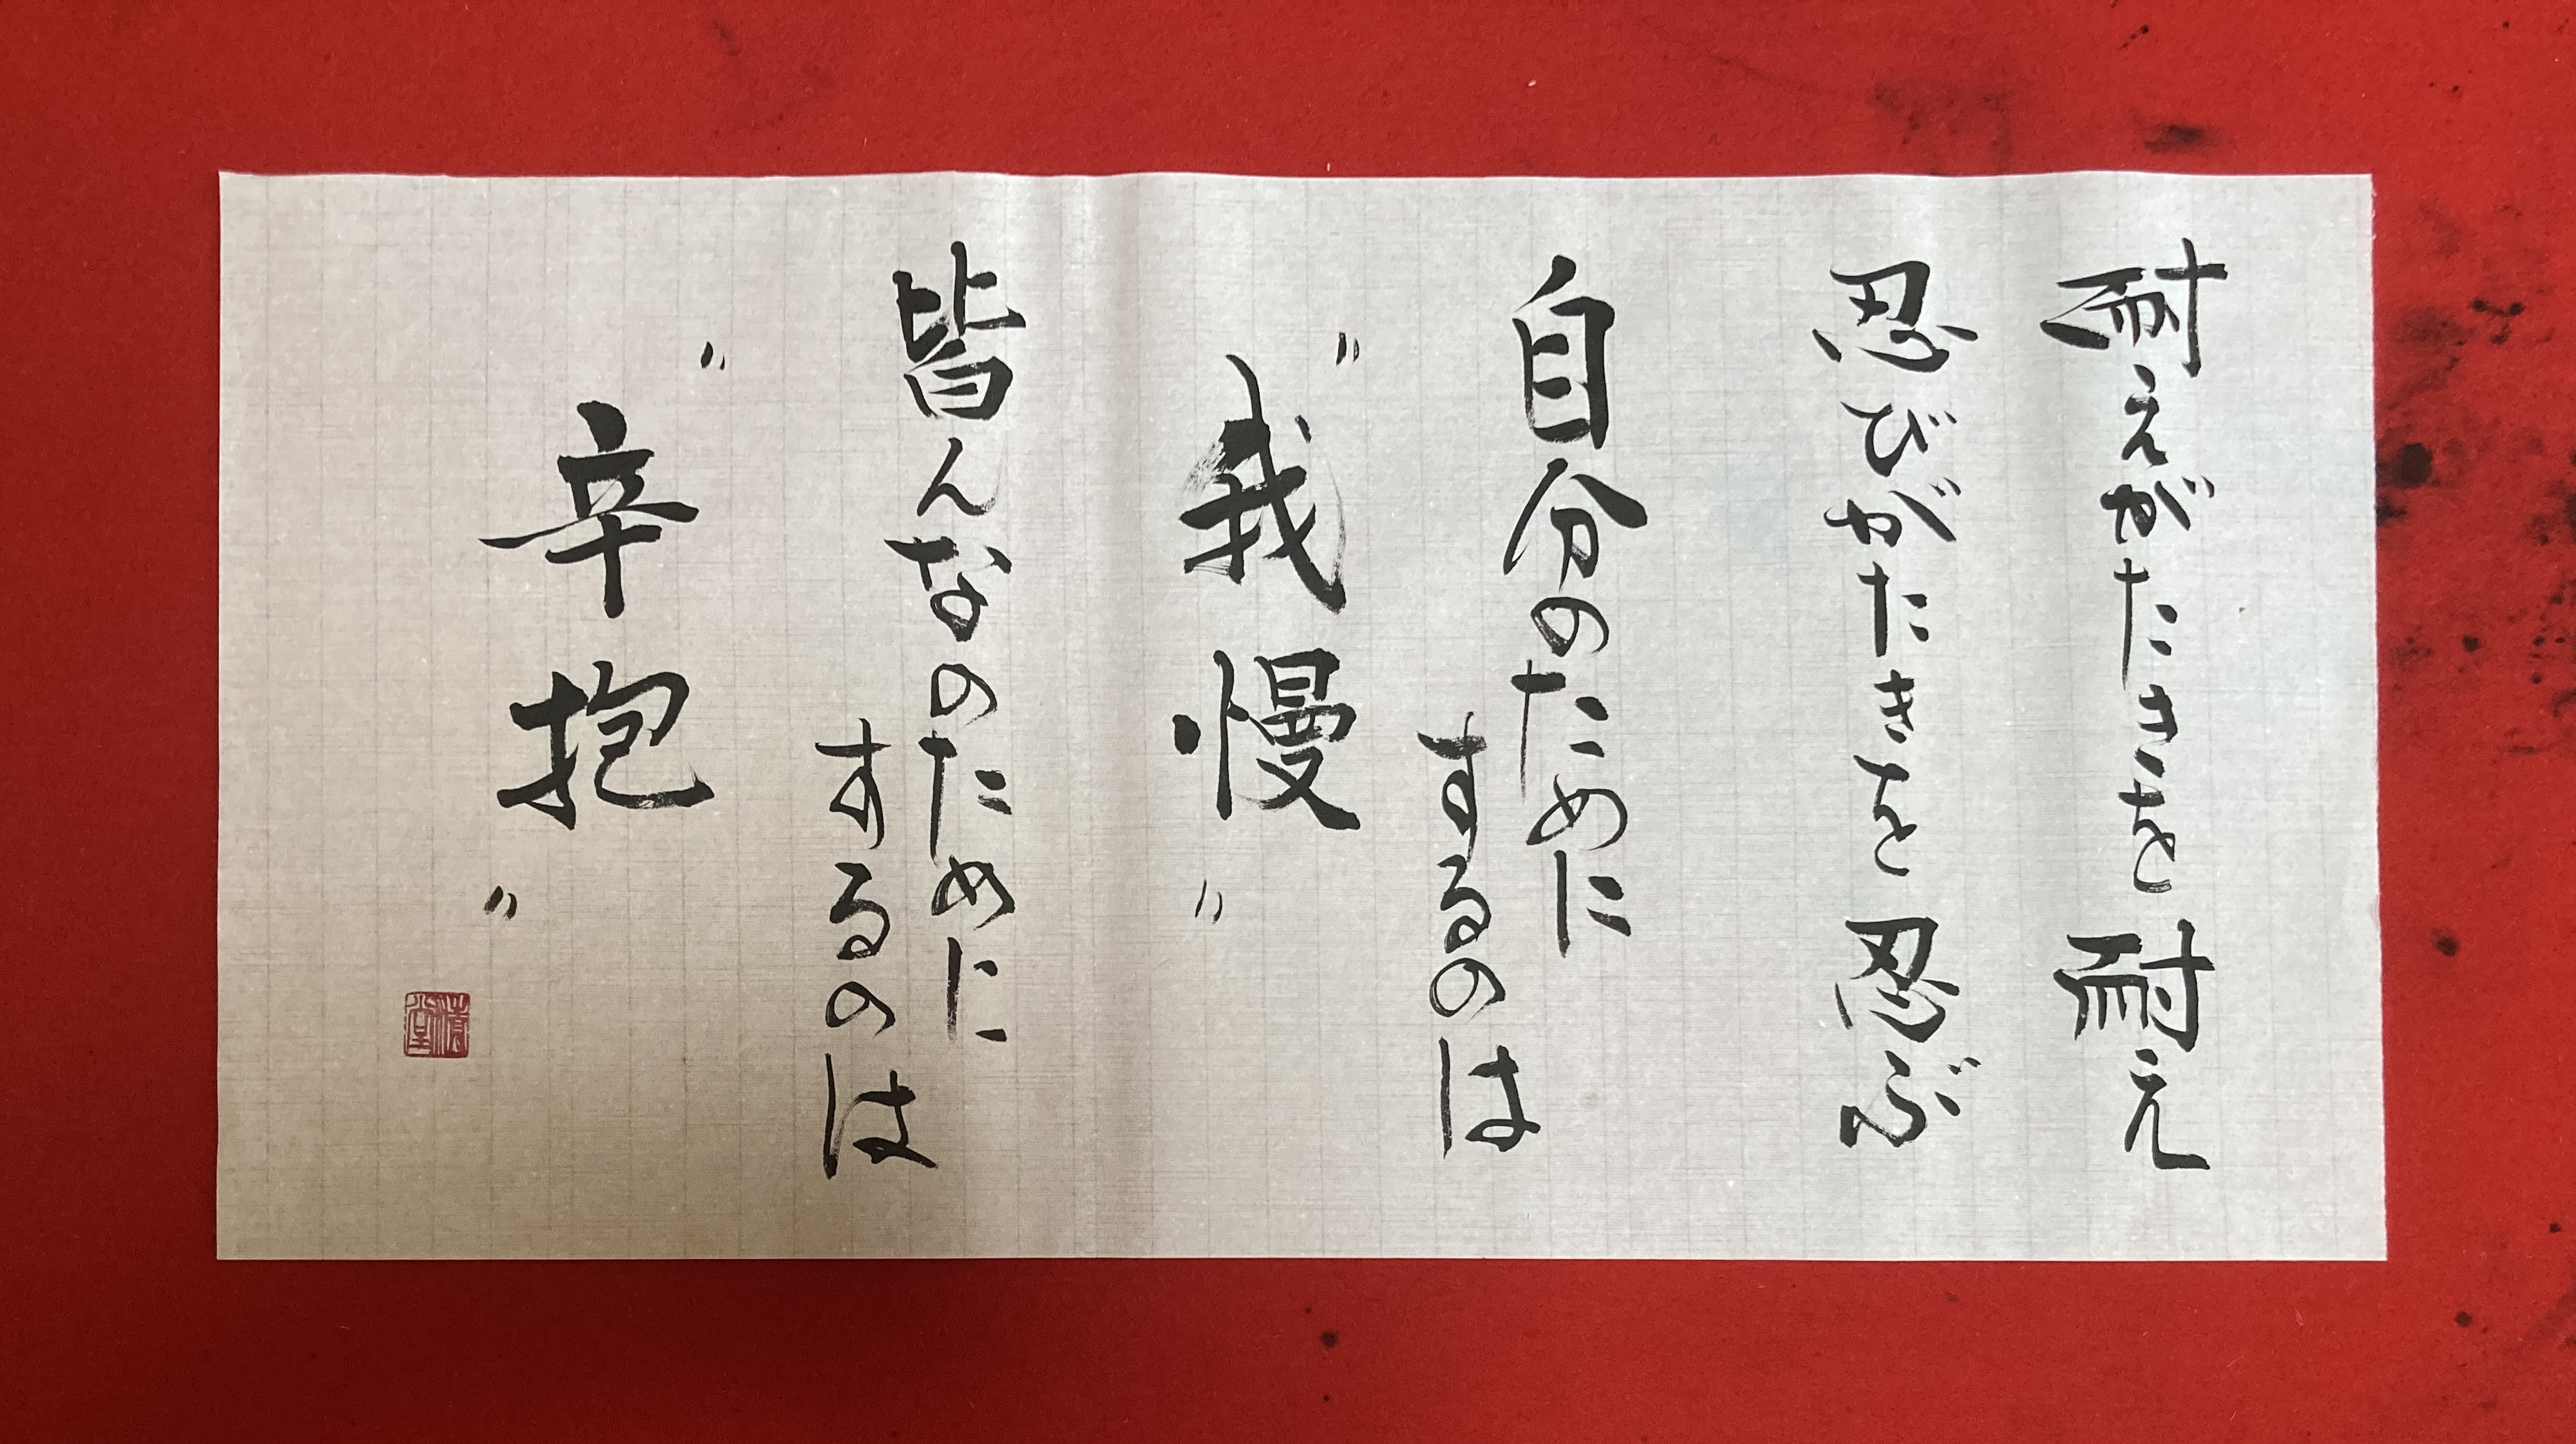 耐えがたきを耐え
忍びがたきを忍ぶ
自分のために
するのは
"我慢"
皆んなのために
するのは
"辛抱"